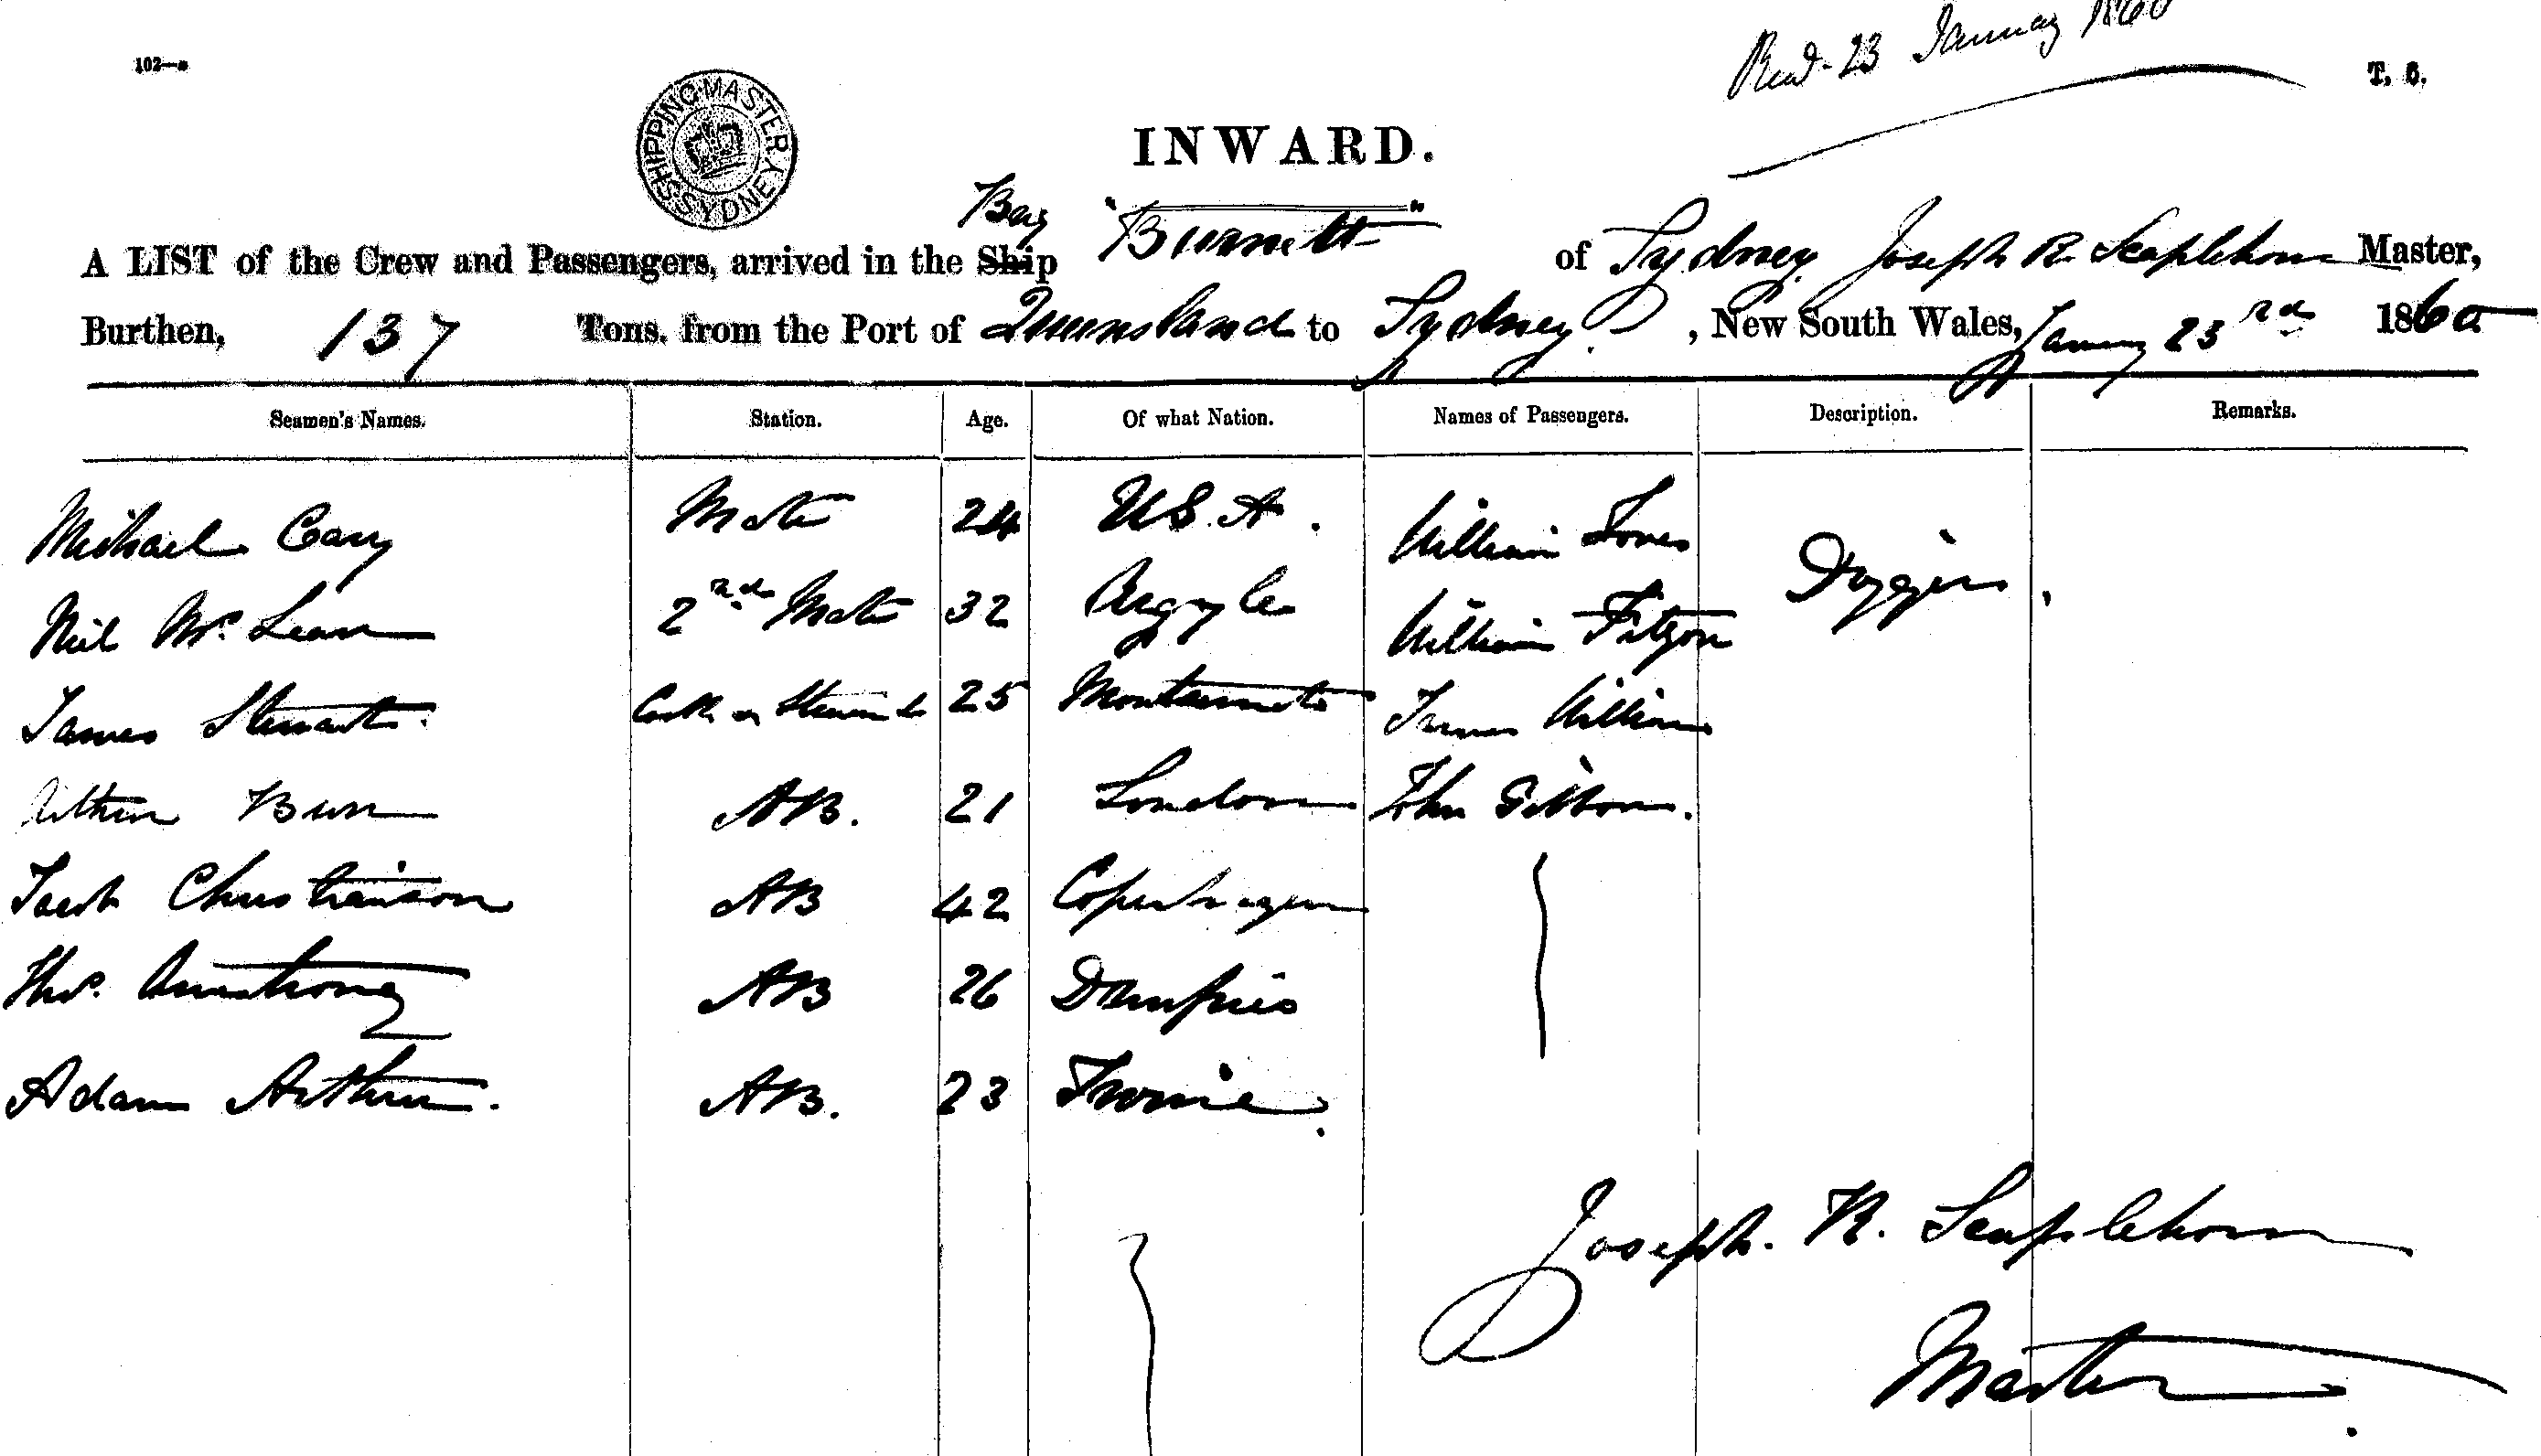 102—
Recd. 23 January 1860
T. 6.
SHIPPING MASTER SYDNEY
INWARD.
A LIST of the Crew and Passengers, arrived in the Ship "Burnett" of Sydney Joseph R. Scaplehorn Master,
Burthen, 137 Tons, from the Port of Queensland to Sydney, New South Wales, January 23rd 1860
Seamen's Names. Station. Age. Of what Nation. Names of Passengers. Description. Remarks.
Michael Cary Mate 24 U.S.A. William Jones
Neil McLean 2nd Mate 32 Argyle William Fitzon Diggers.
James Stewart Cook & Steward 25 James William
Arthur Burn AB. 21 London John Gibbon.
Jacob Christianson AB 42 Copenhagen
Thos. Armstrong AB 26 Dumfries
Adam Arthur. AB. 23 Irvine.
Joseph. R. Scaplehorn
Master.